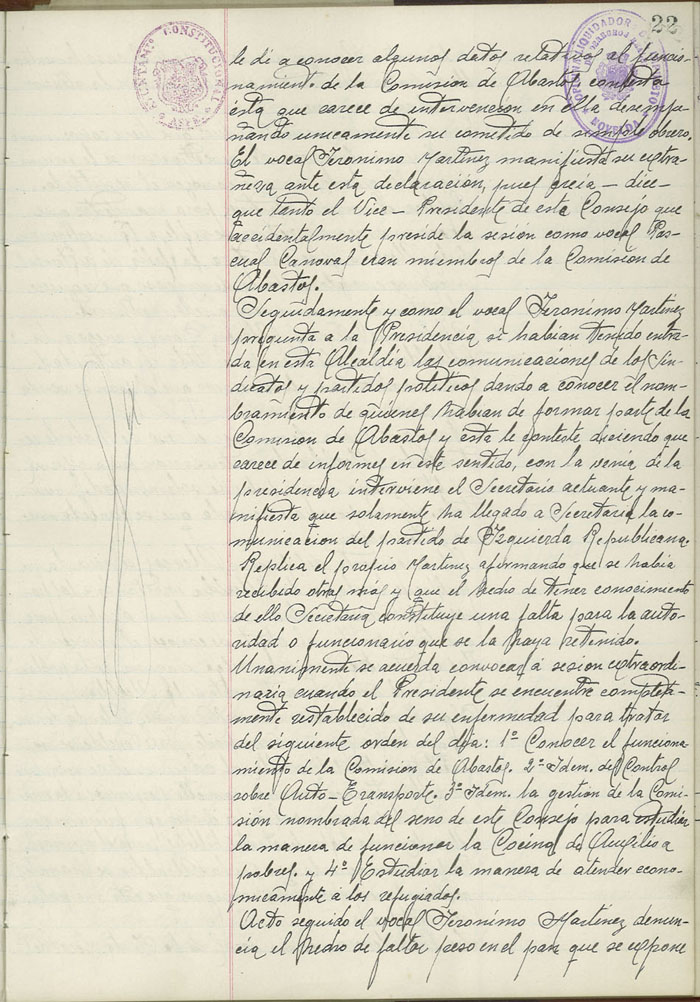 22
AYUNTAMº CONSTITUCIONAL
* ASPE *
LIQUIDADOR
NOVELDA
le di a conocer algunos datos relativos al funcio-
namiento de la Comisión de Abastos contesta
ésta que carece de intervención en ella desempe-
ñando unicamente su cometido de simple obrero.
El vocal Jeronimo Martinez manifiesta su extra-
ñeza ante esta declaración, pues creia – dice –
que tanto el Vice – Presidente de este Consejo que
accidentalmente preside la sesion como vocal Pas-
cual Canoval eran miembros de la Comisión de
Abastos.
Seguidamente y como el vocal Jeronimo Martinez
pregunta a la Presidencia si habian tenido entra-
da en esta Alcaldia las comunicaciones de los Sin-
dicatos y partidos politicos dando a conocer el nom-
bramiento de quienes habian de formar parte de la
Comision de Abastos y esta le conteste diciendo que
carece de informes en este sentido, con la venia de la
presidencia interviene el Secretario actuante y ma-
nifiesta que solamente ha llegado a Secretaria la co-
municacion del partido de Izquierda Republicana.
Replica el propio Martinez afirmando que se habia
recibido otras más y que el hecho de tener conocimiento
de ello Secretaria constituye una falta para la auto-
ridad o funcionario que se la haya retenido.
Unanimente se acuerda convocar á sesion extraordi-
naria cuando el Presidente se encuentre completa-
mente restablecido de su enfermedad para tratar
del siguiente orden del dia: 1º Conocer el funciona-
miento de la Comision de Abastos. 2º Idem. del Control
sobre Auto-Transporte. 3º Idem. la gestión de la Comi-
sion nombrada del seno de este Consejo para estudiar
la manera de funcionar la Cocina de Auxilio a
pobres. y 4º Estudiar la manera de atender econo-
micamente á los refugiados.
Acto seguido el vocal Jeronimo Martinez denun-
cia el hecho de faltar peso en el pan que se expone